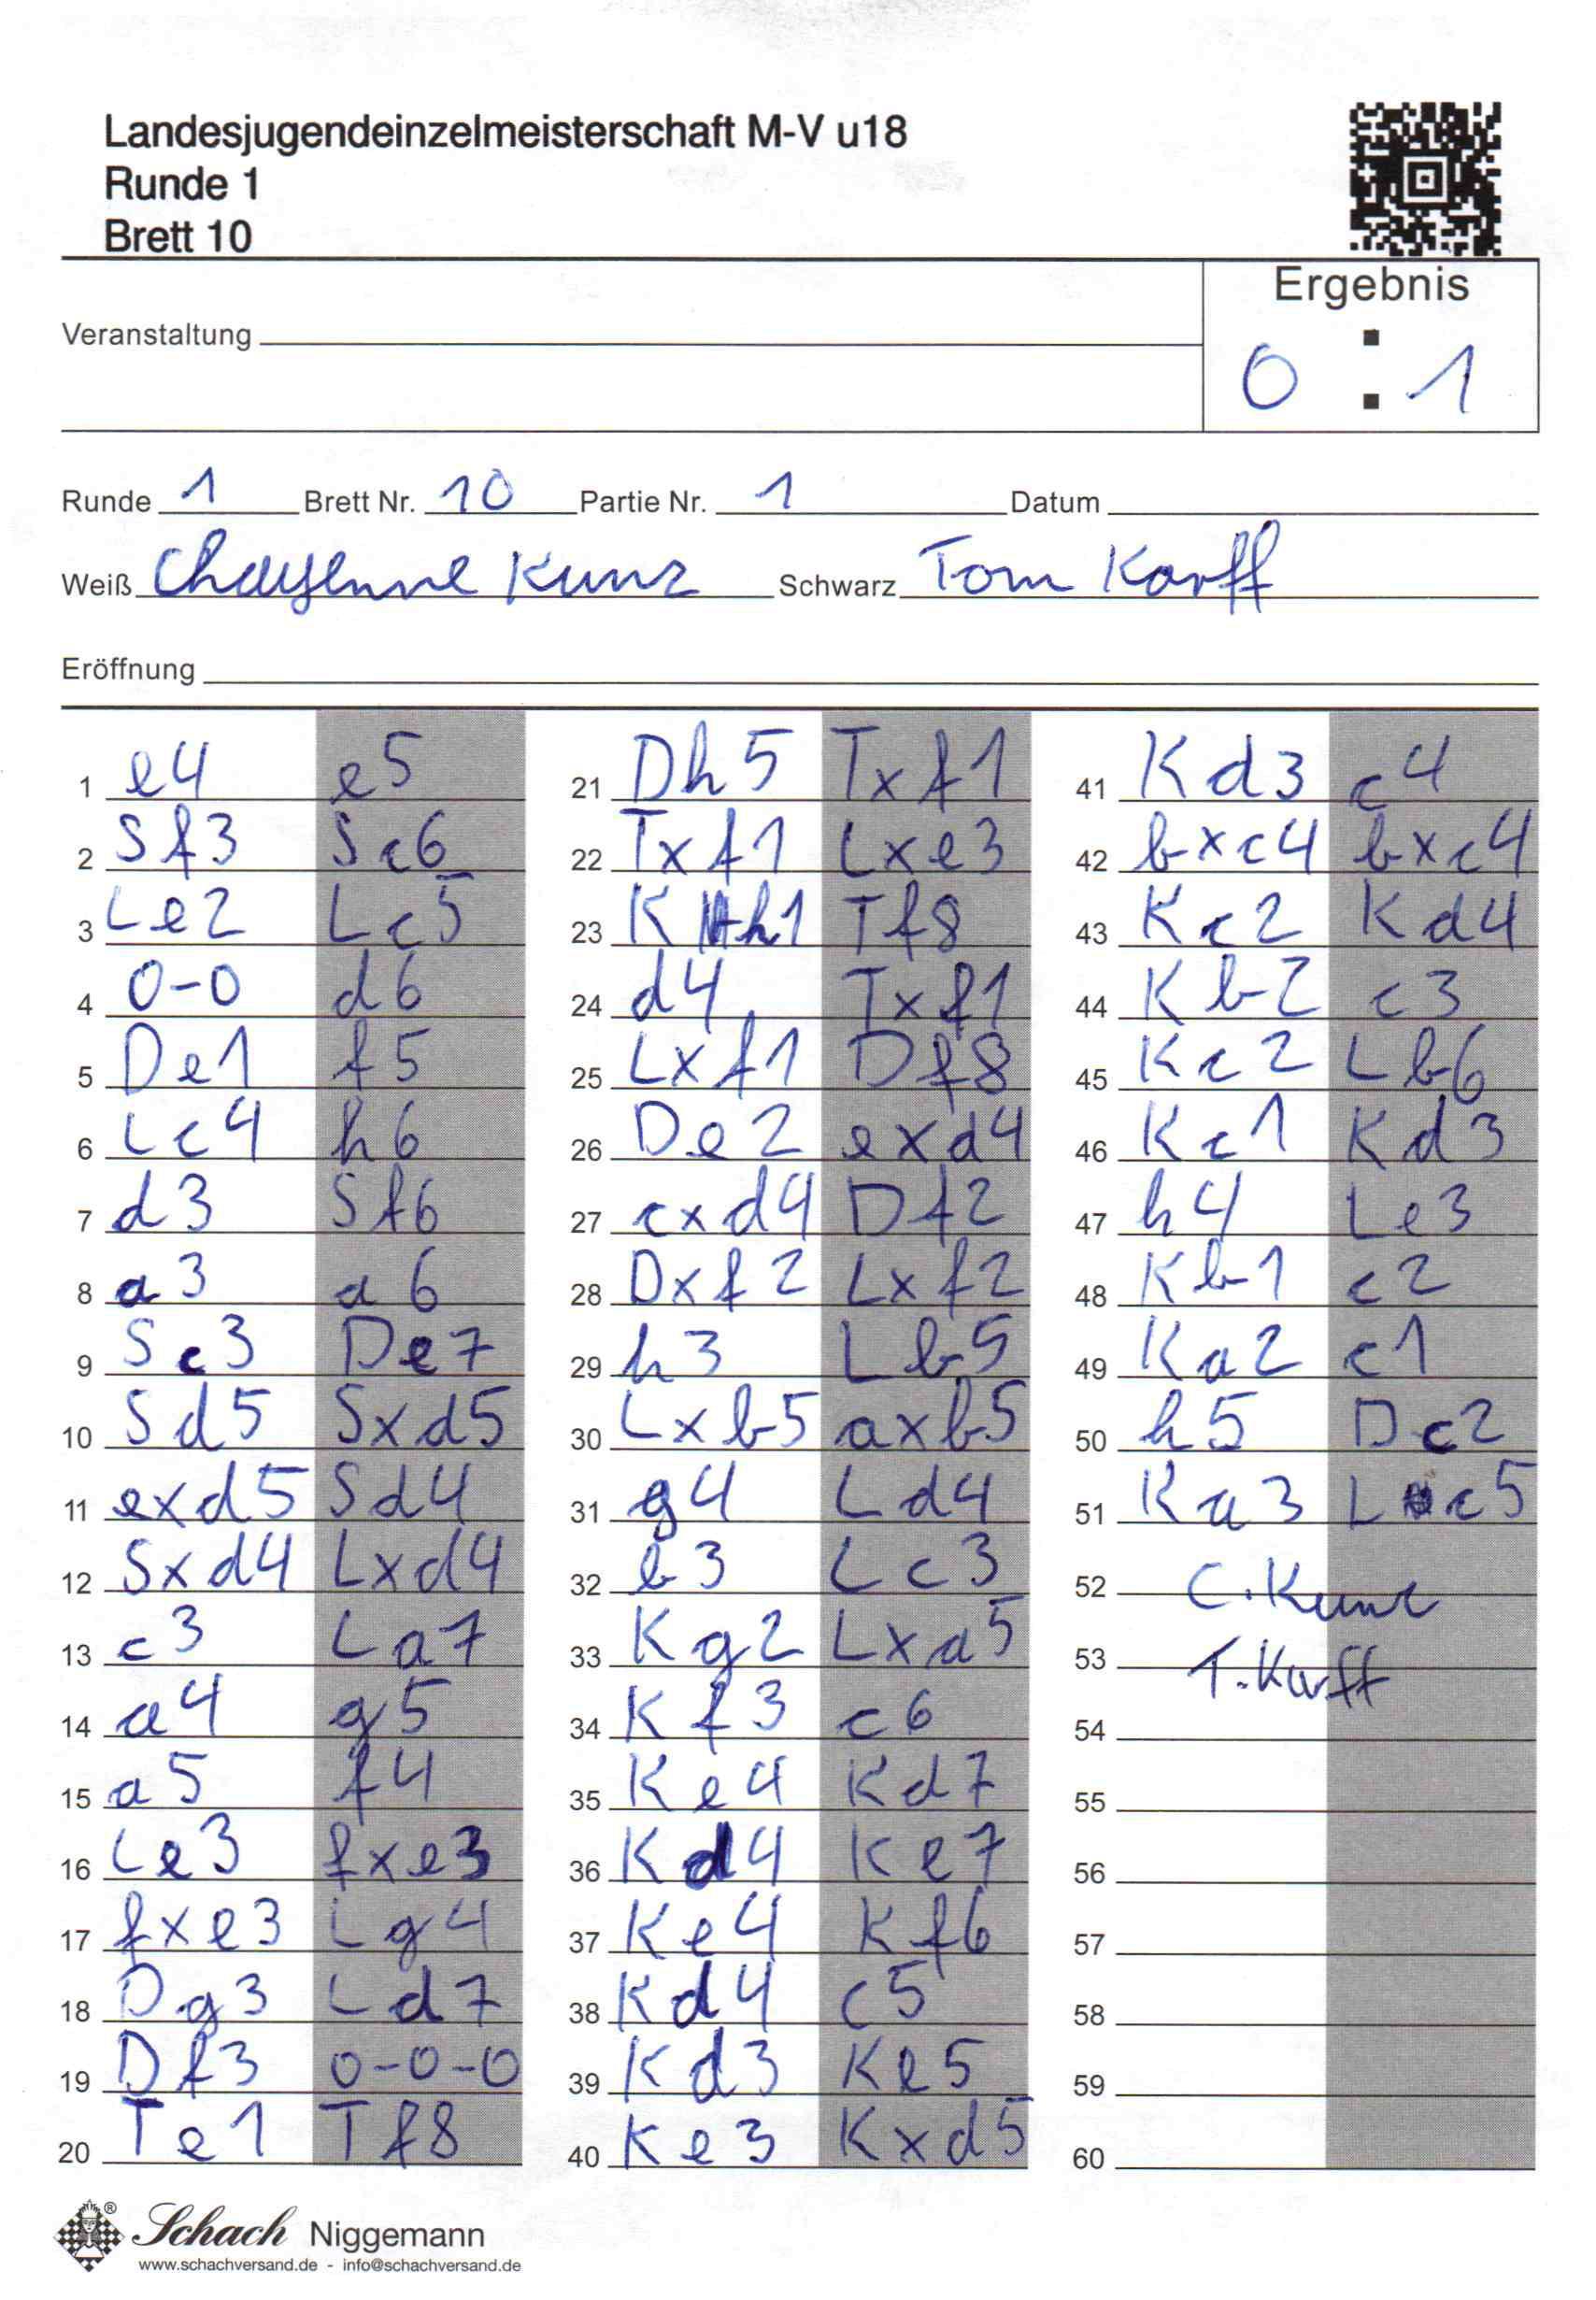 Landesjugendeinzelmeisterschaft M-V u18
Runde 1
Brett 10
Ergebnis
Veranstaltung
0 : 1
Runde 1 Brett Nr. 10 Partie Nr. 1 Datum
Weiß Chayenne Kunz Schwarz Tom Karff
Eröffnung
1 e4 e5
2 Sf3 Sc6
3 Le2 Lc5
4 0-0 d6
5 De1 f5
6 Lc4 h6
7 d3 Sf6
8 a3 a6
9 Sc3 De7
10 Sd5 Sxd5
11 exd5 Sd4
12 Sxd4 Lxd4
13 c3 La7
14 a4 g5
15 a5 f4
16 Le3 fxe3
17 fxe3 Lg4
18 Dg3 Ld7
19 Df3 0-0-0
20 Te1 Tf8
21 Dh5 Txf1
22 Txf1 Lxe3
23 Kh1 Tf8
24 d4 Txf1
25 Lxf1 Df8
26 De2 exd4
27 cxd4 Df2
28 Dxf2 Lxf2
29 h3 Lb5
30 Lxb5 axb5
31 g4 Ld4
32 b3 Lc3
33 Kg2 Lxa5
34 Kf3 c6
35 Ke4 Kd7
36 Kd4 Ke7
37 Ke4 Kf6
38 Kd4 c5
39 Kd3 Ke5
40 Ke3 Kxd5
41 Kd3 c4
42 bxc4 bxc4
43 Kc2 Kd4
44 Kb2 c3
45 Kc2 Lb6
46 Kc1 Kd3
47 h4 Le3
48 Kb1 c2
49 Ka2 c1
50 h5 Dc2
51 Ka3 Lc5
52 C. Kunz
53 T. Karff
54
55
56
57
58
59
60
Schach Niggemann
www.schachversand.de - info@schachversand.de